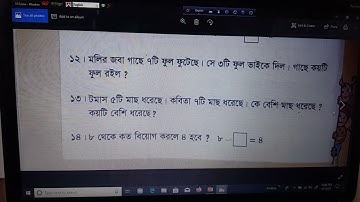 See all photos
Add to an album
Edit & Create
Share
English
১২। মলির জবা গাছে ৭টি ফুল ফুটেছে। সে ৩টি ফুল ভাইকে দিল। গাছে কয়টি
ফুল রইল ?
১৩। টমাস ৫টি মাছ ধরেছে। কবিতা ৭টি মাছ ধরেছে। কে বেশি মাছ ধরেছে ?
কয়টি বেশি ধরেছে ?
১৪। ৮ থেকে কত বিয়োগ করলে ৪ হবে ? ৮ – = ৪